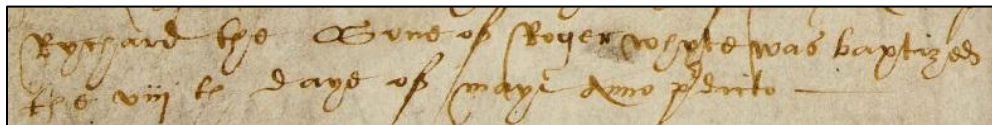 Rychard the Sone of Roger whyte was baptized
the viij th daye of maye Anno p'dicto